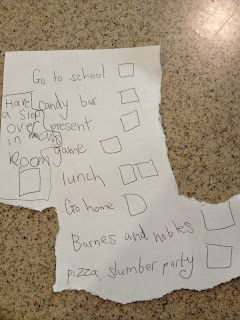 Go to school
candy bar
present
game
lunch
Go home
Barnes and nobles
pizza slumber party
Have
a sleep
over
in my
Room